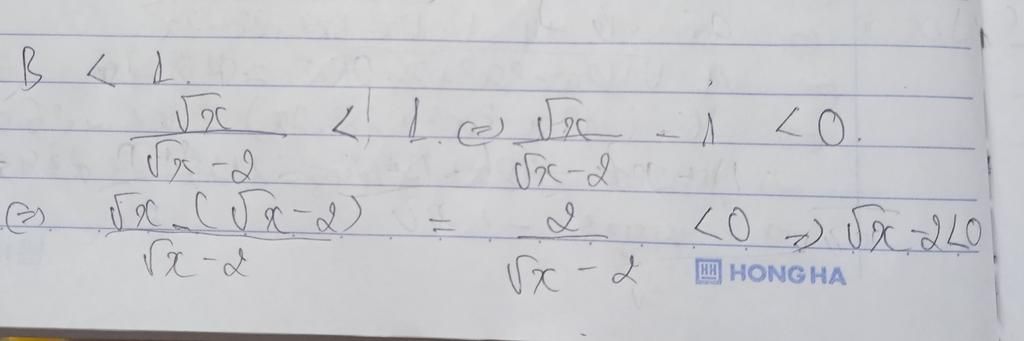 B < 1.
√x / (√x - 2) < 1. <=> √x / (√x - 2) - 1 < 0.
<=> (√x - (√x - 2)) / (√x - 2) = 2 / (√x - 2) < 0 => √x - 2 < 0
HONG HA